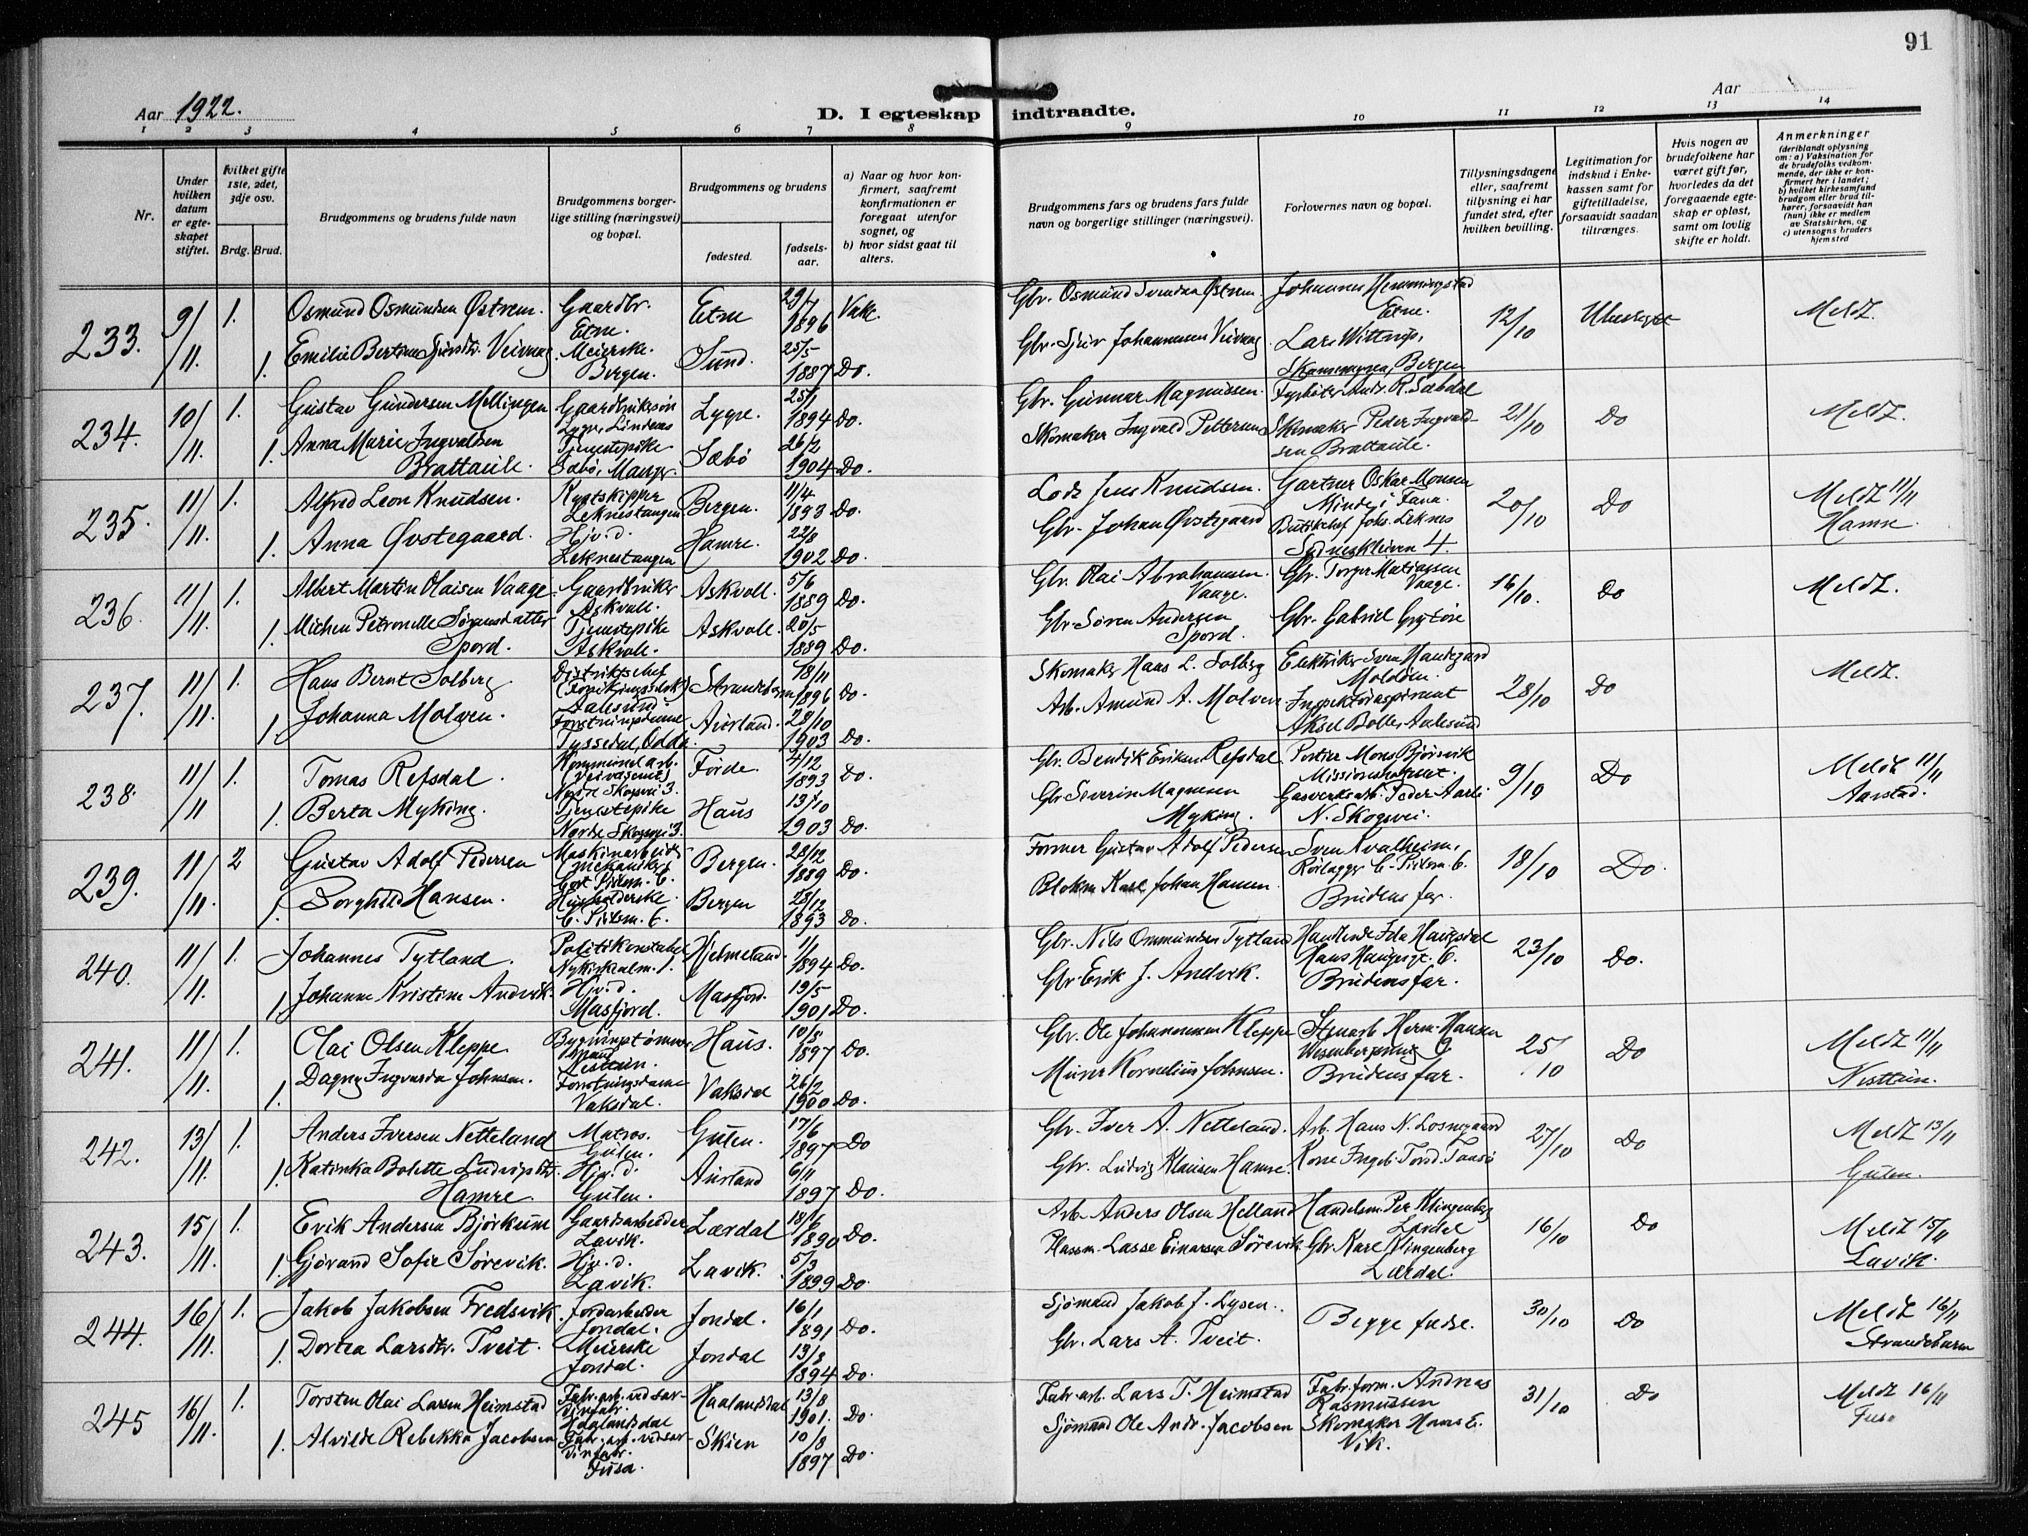 91
Aar 1922.
Aar
D. I egteskap indtraadte.
1 2 3 4 5 6 7 8 9 10 11 12 13 14
Nr.
Under hvilken datum er egteskapet stiftet.
Hvilket gifte 1ste, 2det, 3dje osv.
Brdg. Brud.
Brudgommens og brudens fulde navn
Brudgommens borgerlige stilling (næringsvei) og bopæl.
Brudgommens og brudens
fødested.
fødselsaar.
a) Naar og hvor konfirmert, saafremt konfirmationen er foregaat utenfor sognet, og
b) hvor sidst gaat til alters.
Brudgommens fars og brudens fars fulde navn og borgerlige stillinger (næringsvei).
Forlovernes navn og bopæl.
Tillysningsdagene eller, saafremt tillysning ei har fundet sted, efter hvilken bevilling.
Legitimation for indskud i Enkekassen samt for giftetilladelse, forsaavidt saadan tiltrænges.
Hvis nogen av brudefolkene har været gift før, hvorledes da det foregaaende egteskap er opløst, samt om lovlig skifte er holdt.
Anmerkninger (deriblandt oplysning om: a) Vaksination for de brudefolks vedkommende, der ikke er konfirmert her i landet; b) hvilket kirkesamfund brudgom eller brud tilhører, forsaavidt han (hun) ikke er medlem av Statskirken, og c) utensogns bruders hjemsted
233. 9/11. 1. Osmund Osmundsen Østrem. Gaardbr. Etne. Etne 29/7 1896 Vakc. Gbr. Osmund Svendsen Østrem Johannes Hemmingstad Etne. 12/10 Meldt.
1. Emilie Veivaag Meierske. Bergen. Sund. 25/5 1887 Do. Gbr. Sjur Johannesen Veivaag Lars Wittrup, Bergen
234. 10/11. 1. Gustav Gundersen Mellingen Lygre. 25/1 1894 Do. Gbr. Gunnar Magnussen. 21/10 Do Meldt.
1. Anna Marie Ingvaldsen Brattaule. Tjenestepike Sæbø, Manger. Sæbø 26/2 1904 Do. Skomaker Ingvald Pettersen Skomaker Peder Ingvaldsen Brattaule
235. 11/11. 1. Alfred Leon Knudsen. Leknestangen Bergen. 11/4 1893 Do. Lods Jens Knudsen. Gartner Oskar Monsen Minde i Fana. 20/10 Do Meldt 11/11 Hamre.
1. Anna Øvstegaard. Hjv. d. Leknestangen Hamre. 22/8 1902 Do. Gbr. Johan Øvstegaard Joh. Leknes Sydneskleiven 4.
236. 11/11. 1. Albert Martin Olaisen Vaage. Gaardbruker Askvoll. Askvoll. 5/6 1889 Do. Gbr. Olai Abrahamsen Vaage. Gbr. Torger Matiassen Vaage. 16/10. Do Meldt.
1. Michen Petronelle Sørensdatter Spord. Tjenestepike Askvoll. Askvoll. 20/5 1889 Do. Gbr. Søren Andersen Spord. Gbr. Gabriel Grytøre
237. 11/11. 1. Hans Bernt Solberg Aalesund Strandebarm 18/11 1896 Do. Skomaker Hans L. Solberg 28/10 Do Meldt.
1. Johanna Molven. Tyssedal, Odda. Aurland. 28/10 1903 Do. Arb. Amund A. Molven Inspektøraspirant Aksel Aalesund
238. 11/11 1. Tomas Refsdal. Kommunearb. (Veivæsenet) Nordre Skogvei 3. Førde. 4/12 1893 Do. Gbr. Bendik Eriksen Refsdal Portier Mons Bjørsvik Missionshotellet. 9/10 Do Meldt 11/11 Aarstad.
1. Berta Myking. Tjenestepike Nordre Skogvei 3. Haus 13/10 1903 Do. Gbr. Severin Magnesen Myking. Gasverksarb. Peder Aarli N. Skogvei.
239. 11/11. 2 Gustav Adolf Pedersen Maskinarbeider Bergen. 28/12 1889 Do. Former Gustav Adolf Pedersen Sven Kvalheim, 18/10 Do.
1. Borghild Hansen. Husholderske Bergen 28/12 1893 Do. Karl Johan Hansen. Brudens far.
240. 11/11. 1. Johannes Tytland. Politikonstabel Hjelmeland. 1/1 1894 Do. Gbr. Nils Ommundsen Tytland Hans Haugesgt. 6. 23/10 Do.
1. Johanne Kristine Andvik. Hjv. d. Masfjord. Masfjord. 19/5 1901 Do. Gbr. Erik J. Andvik. Brudens far.
241. 11/11. 1. Olai Olsen Kleppe Bygningstømmermand Nesttun. Haus. 10/3 1897 Do. Gbr. Ole Johannessen Kleppe Stenarb. Herm. Hansen 25/10 Do Meldt 11/11 Nesttun.
1. Dagny Ingvarda Johnsen. Forretningsdame Vaksdal. Vaksdal 26/2 1900 Do. Murer Kornelius Johnsen. Brudens far.
242. 13/11. 1. Anders Iversen Netteland Matros. Gulen. Gulen. 17/6 1897 Do Gbr. Iver A. Netteland. Arb. Hans N. Losnegaard 27/10 Do Meldt 13/11 Gulen.
1. Katinka Bolette Ludvigsdtr. Hamre. Hjv. d. Gulen. Aurland 6/11 1897 Do. Gbr. Ludvig Klausen Hamre.
243. 15/11. 1. Erik Andersen Bjørkum Gaardsarbeider Lavik. Lærdal 18/6 1890 Do. Arb. Anders Olsen Helland Handelsm. Per Klingenberg Lærdal 16/10 Do Meldt 15/11 Lavik.
1. Gjørand Sofie Sørevik. Hjv. d. Lavik. Lavik. 5/3 1899 Do. Plassm. Lasse Einarsen Sørevik Gbr. Kare Klingenberg Lærdal.
244. 16/11. 1. Jakob Jakobsen Fredsvik. Jordarbeider Jondal. Jondal. 16/1 1891 Do. Sjømand Jakob J. Lysen. Begge fædre. 30/10 Do Meldt 16/11 Strandebarm
1. Dortea Larsdtr. Tveit. Meierske Jondal. Jondal 13/8 1894 Do. Gbr. Lars A. Tveit.
245 16/11. 1. Torsten Olai Larsen Heimstad Haalandsdal Haalandsdal 13/8 1901. Do. Fabr. arb. Lars T. Heimstad Fabr. form. Andreas Rasmussen 31/10 Do Meldt 16/11 Fuse
1. Alvilde Rebekka Jacobsen Fusa. Skien 10/8 1897 Do. Sjømand Ole Andr. Jacobsen Skomaker Hans E. Vik.